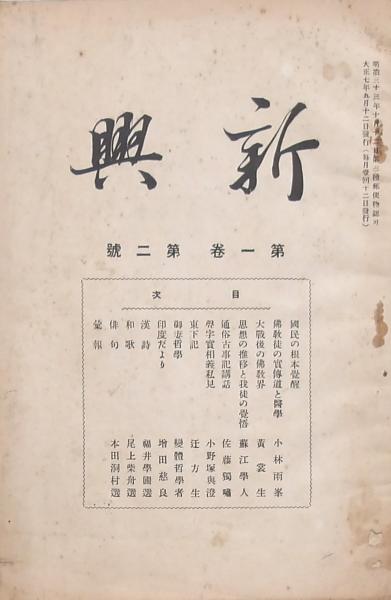 明治三十三年十月十二日第三種郵便物認可
大正七年九月十二日發行(每月壹回十二日發行)
新興
第一卷第二號
目次
國民の根本覺醒 小林雨峯
佛敎徒の實傳道と醫學 黃裳生
大戰後の佛敎界 蘇江學人
思想の推移と我徒の覺悟 佐藤獨嘯
通俗古事記講話 小野塚與澄
聲字實相義私見 辻方生
東下記 變體哲學者
御玄哲學 增田慈良
印度だより 福井學圃選
漢詩 尾上柴舟選
和歌 本田洞村選
俳句
彙報